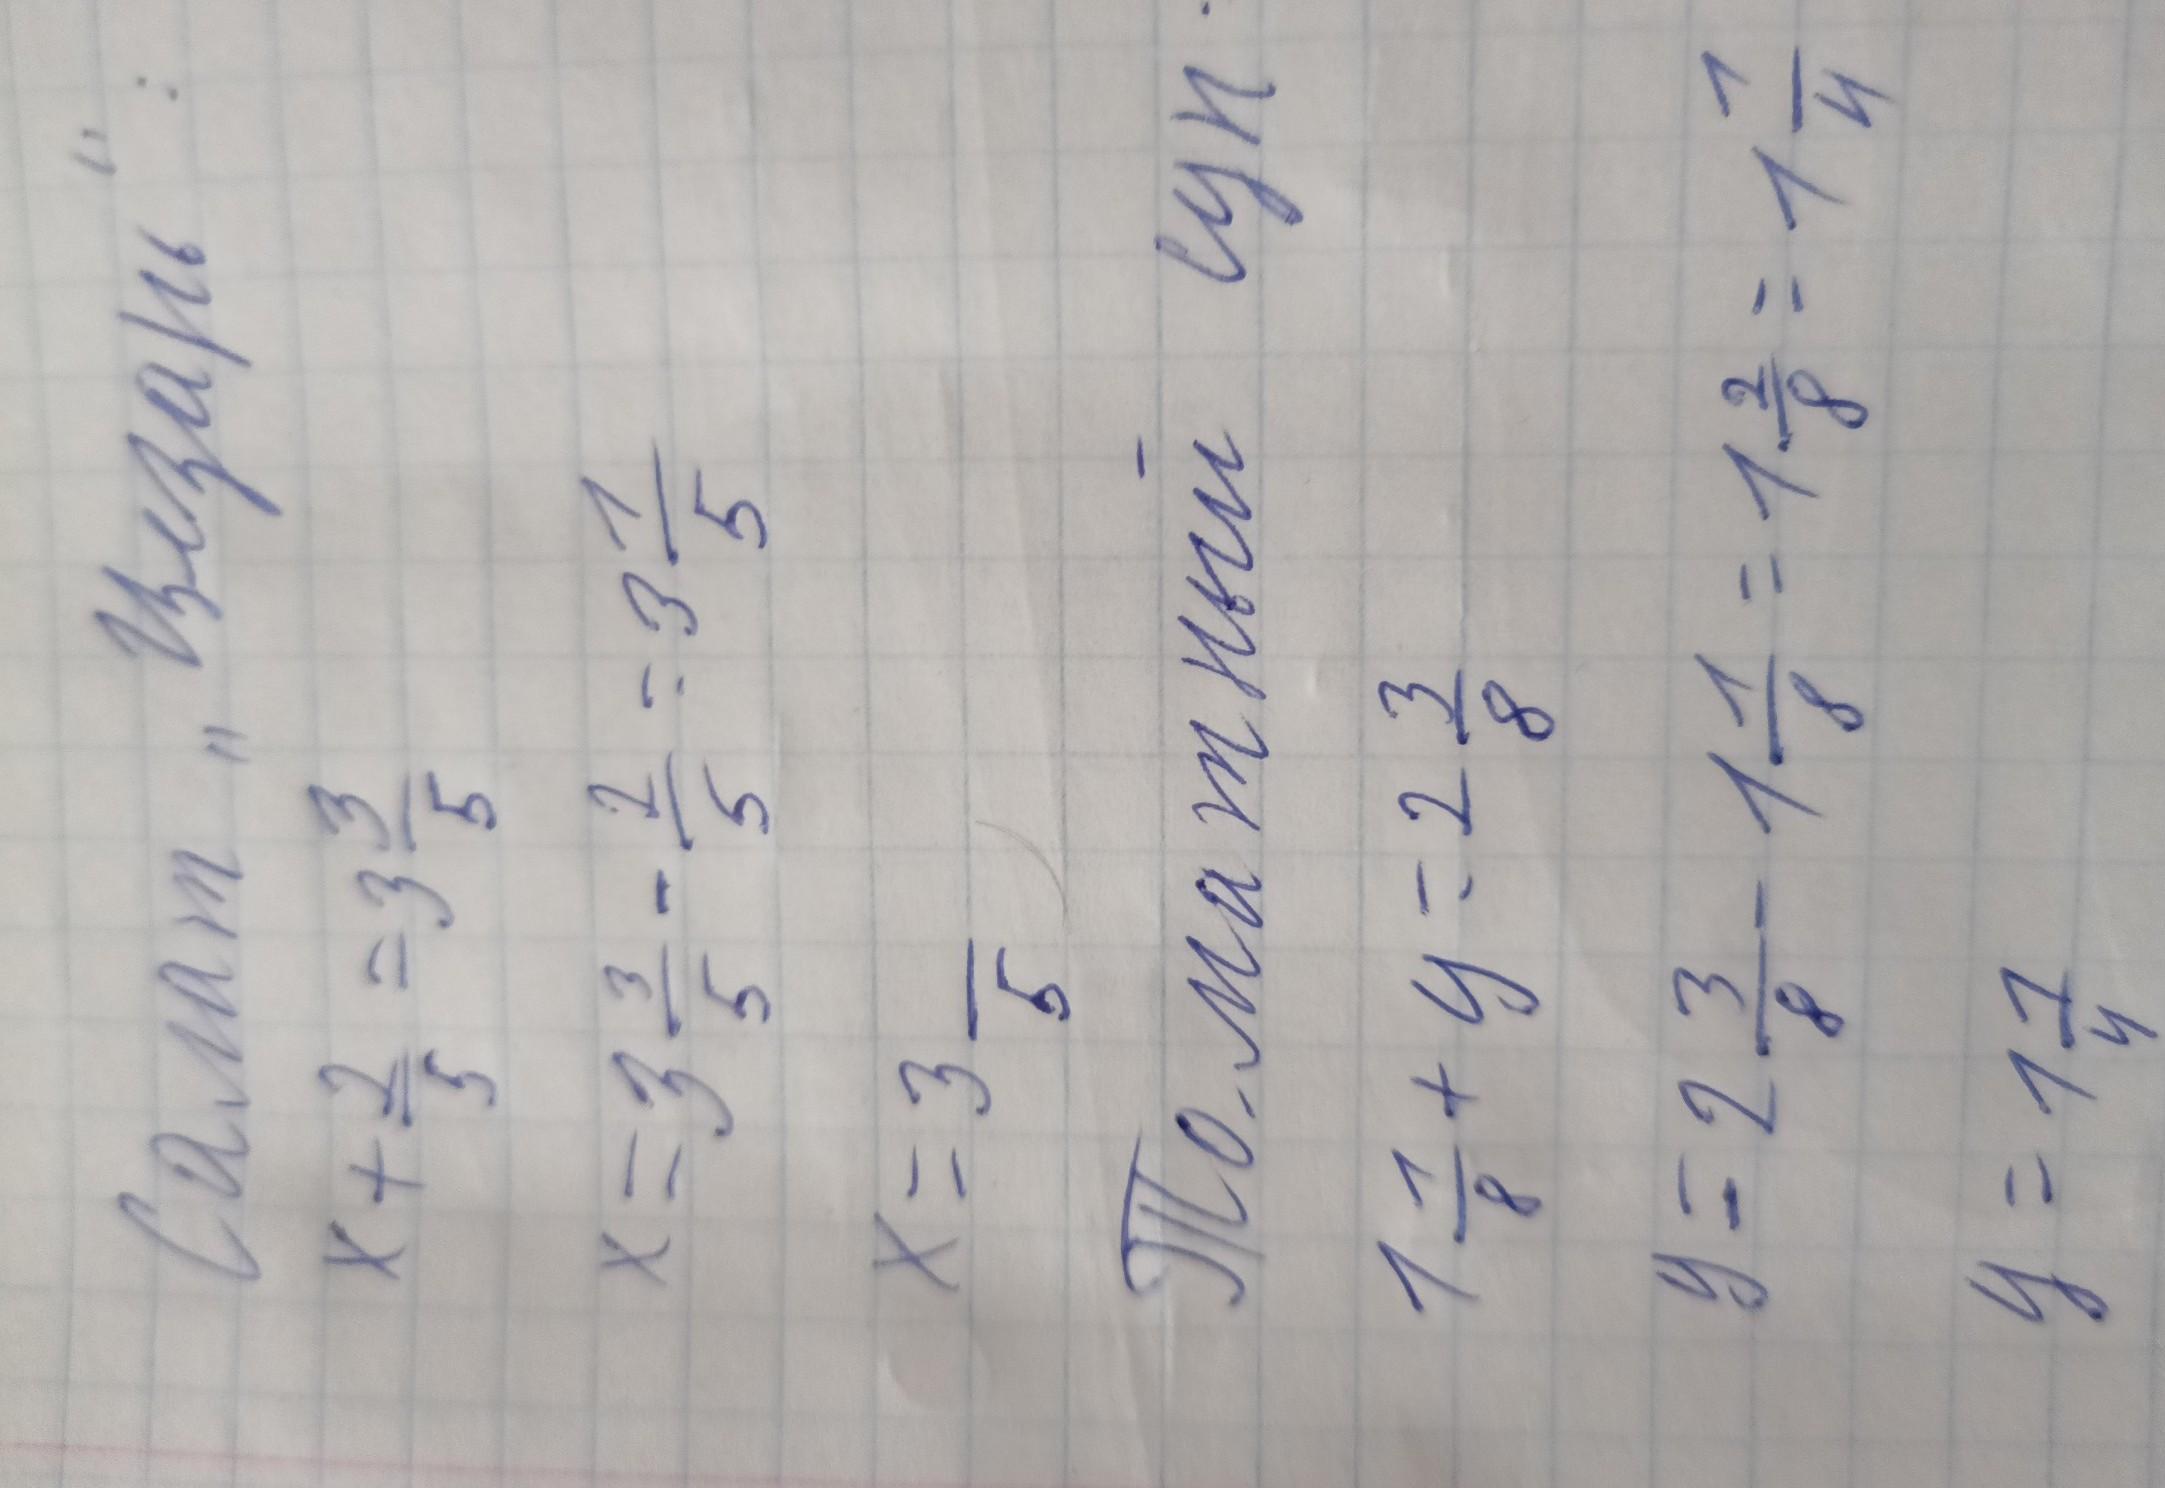 Салат „Цезарь“:
x + 2/5 = 3 3/5
x = 3 3/5 - 2/5 = 3 1/5
x = 3 /5
Томатный суп.
1 1/8 + y = 2 3/8
y = 2 3/8 - 1 1/8 = 1 2/8 = 1 1/4
y = 1 1/4